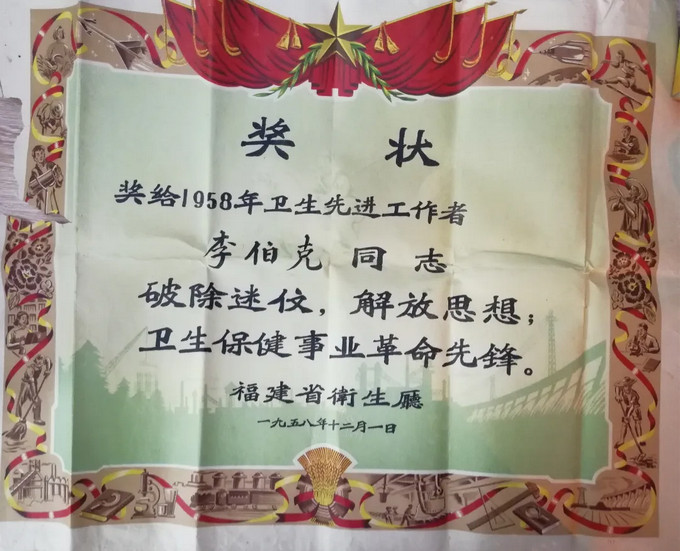 奖状
奖给1958年卫生先进工作者
李伯克同志
破除迷仪，解放思想；
卫生保健事业革命先锋。
福建省衛生廳
一九五八年十二月一日